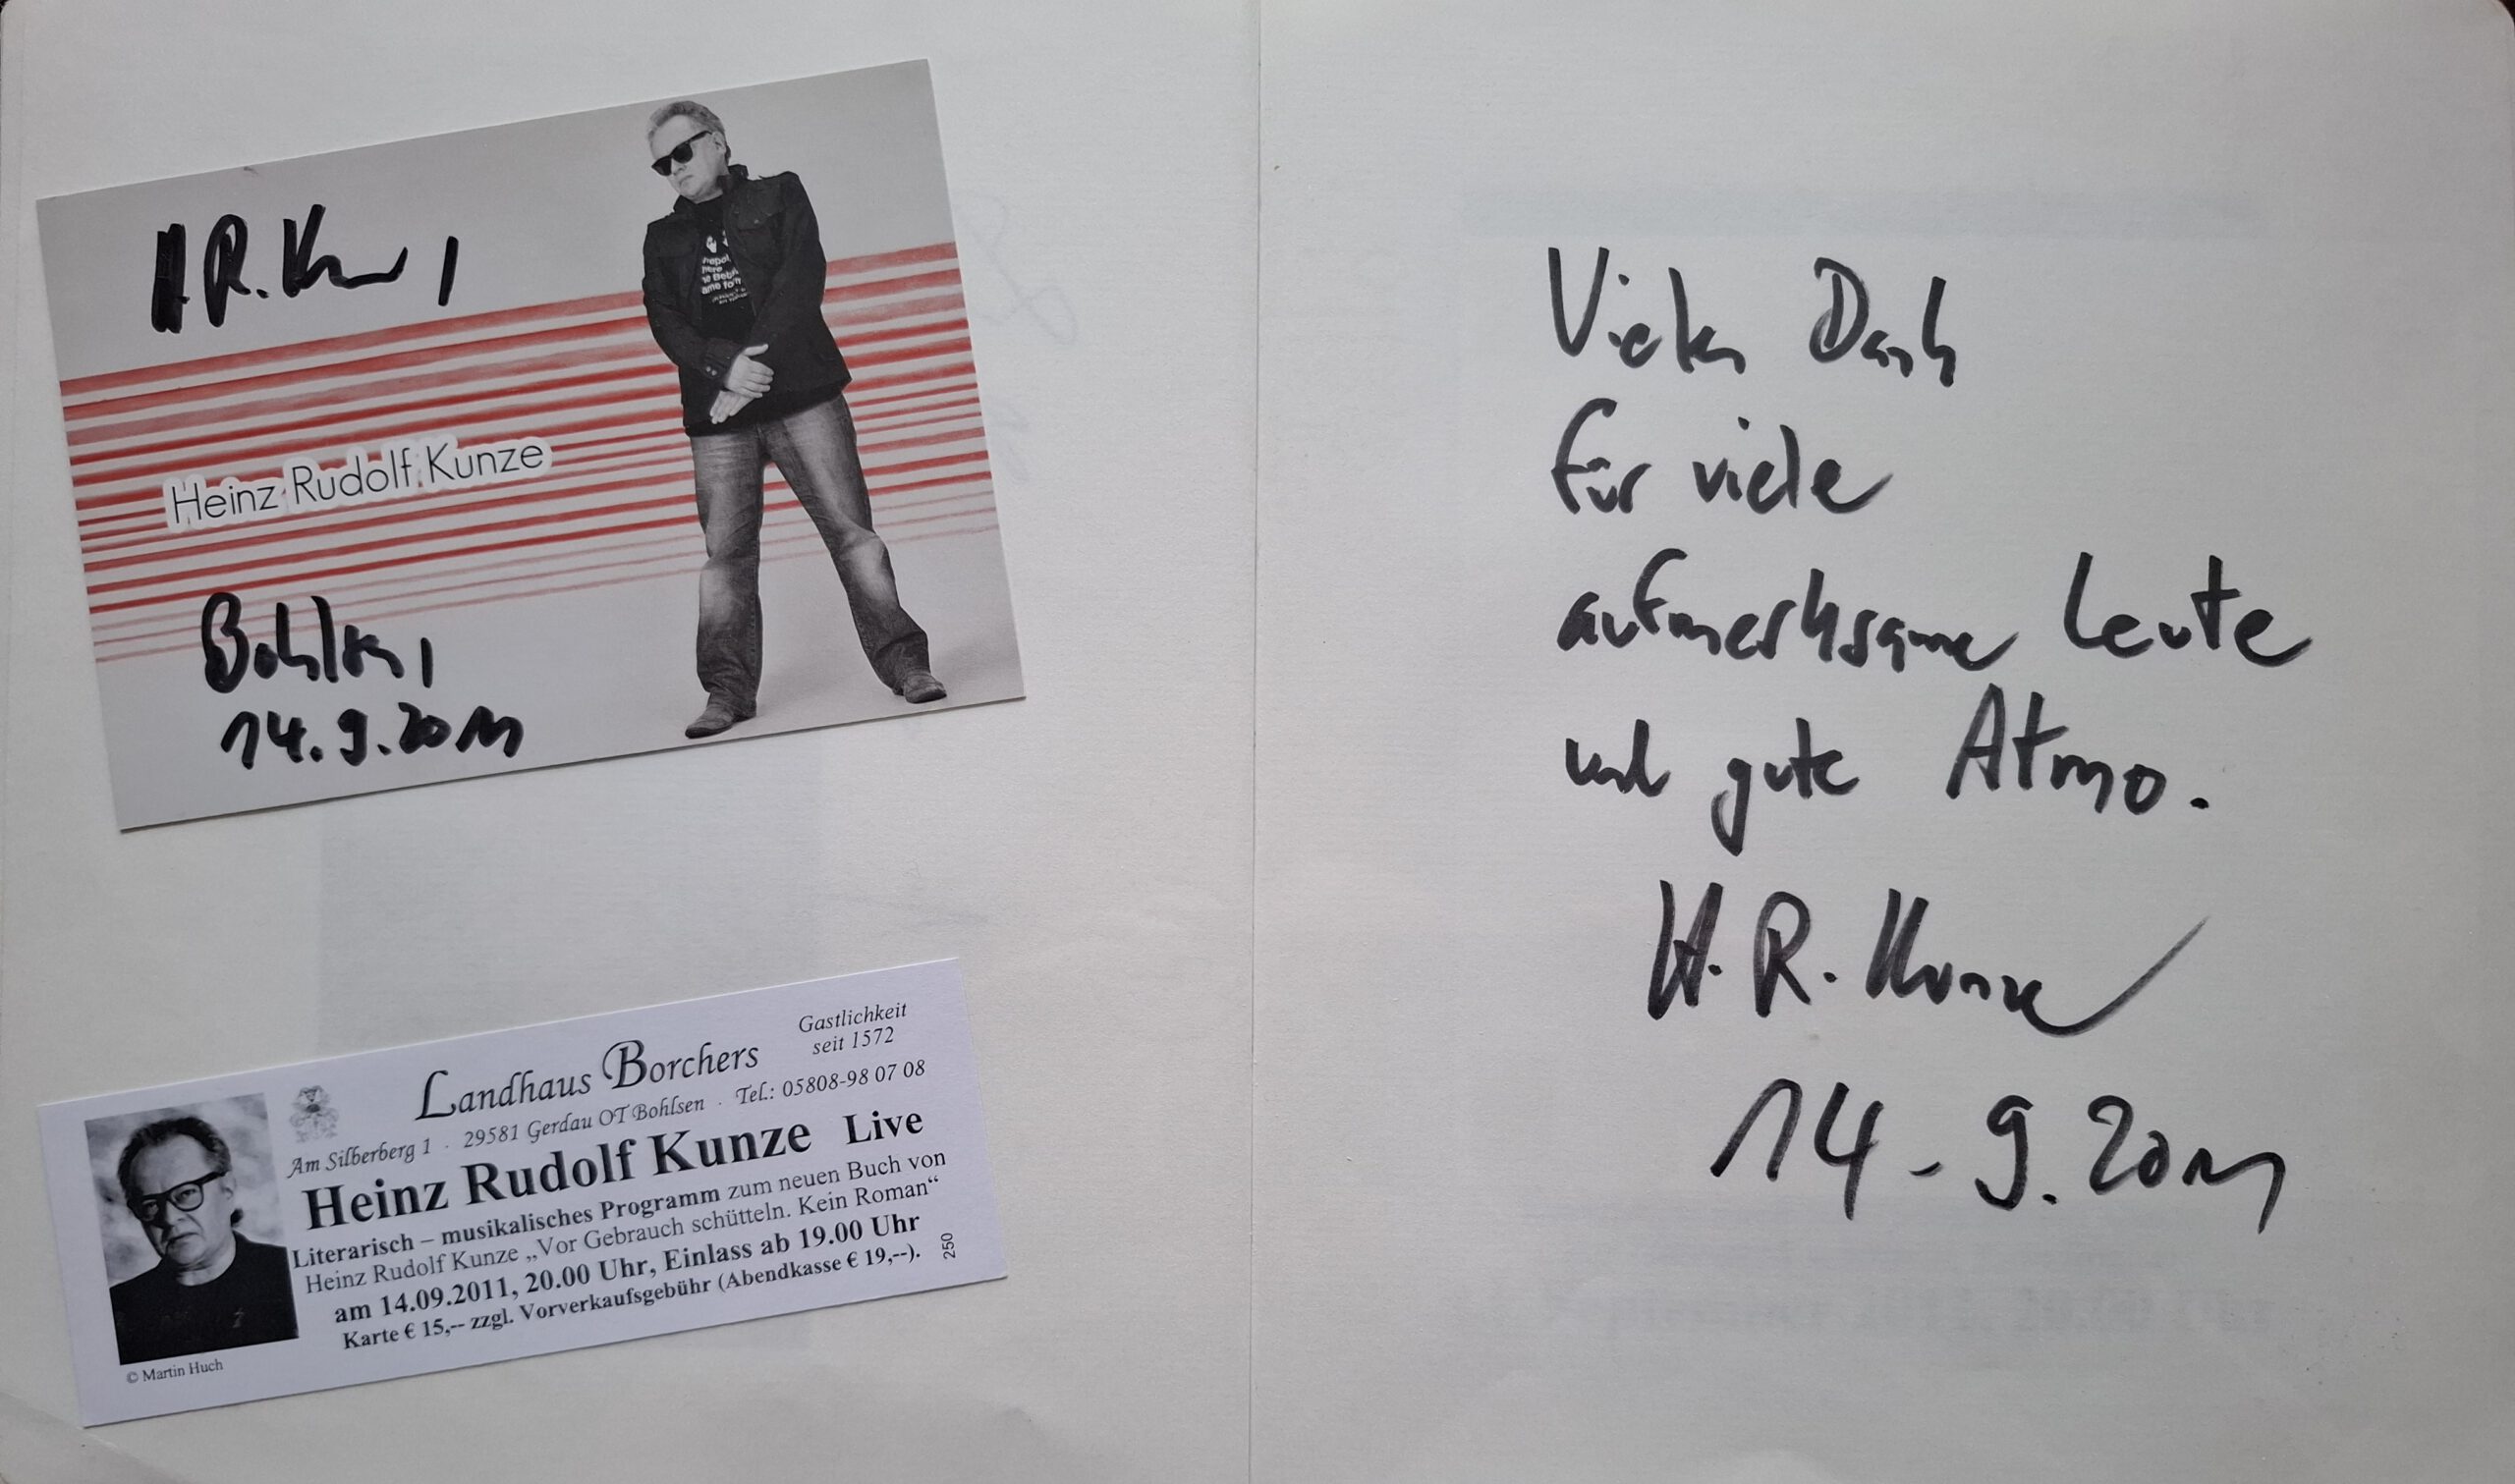 H.R. Kunze,
Heinz Rudolf Kunze
Bohlsen,
14.9.2011
Landhaus Borchers
Gastlichkeit
seit 1572
Am Silberberg 1 . 29581 Gerdau OT Bohlsen . Tel.: 05808-98 07 08
Heinz Rudolf Kunze Live
Literarisch – musikalisches Programm zum neuen Buch von
Heinz Rudolf Kunze „Vor Gebrauch schütteln. Kein Roman“
am 14.09.2011, 20.00 Uhr, Einlass ab 19.00 Uhr
Karte € 15,-- zzgl. Vorverkaufsgebühr (Abendkasse € 19,--).
250
© Martin Huch
Vielen Dank
für viele
aufmerksame Leute
und gute Atmo.
H. R. Kunze
14.9.2011